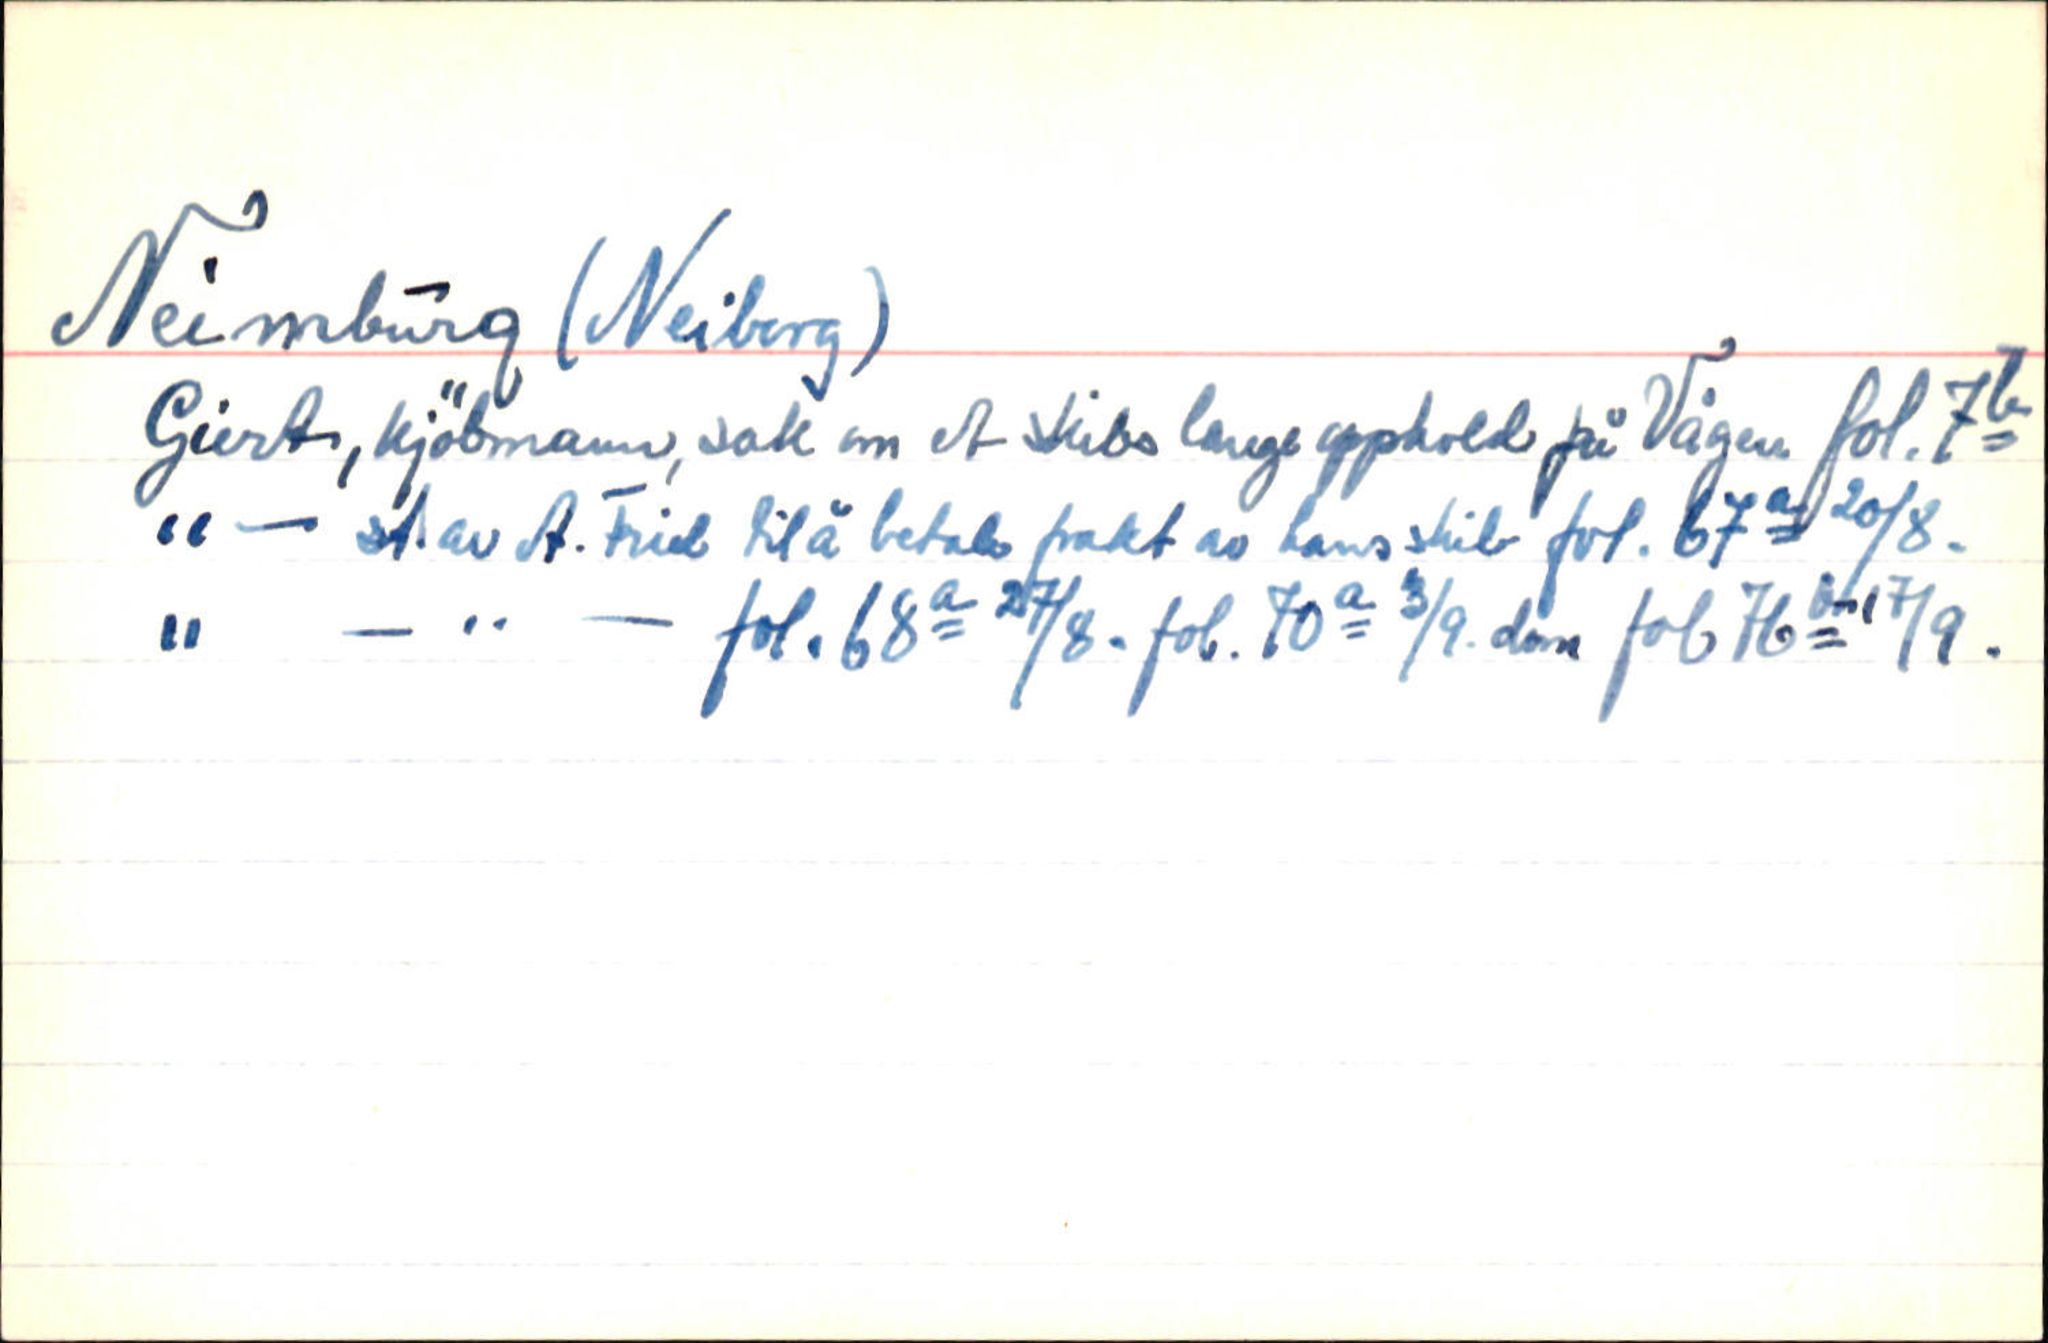 Neimbūrg (Neiborg)
Giert, kjöbmann, sak om et skibs lange opphold på Vågen fol. 7b
" — st. av A. Friel til å betale frakt av hans skib fol. 67a 20/8.
" — " — fol. 68a 27/8. fol. 70a 3/9. dom fol 76b 17/9.